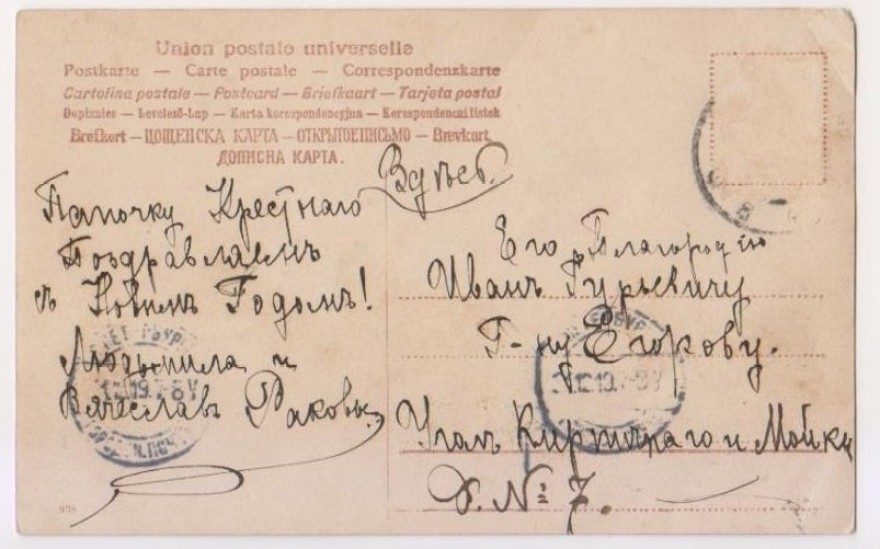 Union postale universelle
Postkarte — Carte postale — Correspondenzkarte
Cartolina postale — Postcard — Briefkaart — Tarjeta postal
Dopisnice — Levelező-Lap — Karta korespondencyjna — Korespondenční lístek
Brefkort — ЦОЩЕНСКА КАРТА — ОТКРЫТОЕ ПИСЬМО — Brevkort
ДОПИСНА КАРТА.
Папочку Крестнаго
Поздравляемъ
съ Новымъ Годомъ!
Людмила и
Вячеславъ Раковы.
9018
Здѣсь.
Его Благородію
Иванъ Гурьевичу
Г-ну Егорову.
Уголъ Кирпичнаго и Мойки
д. № 7.